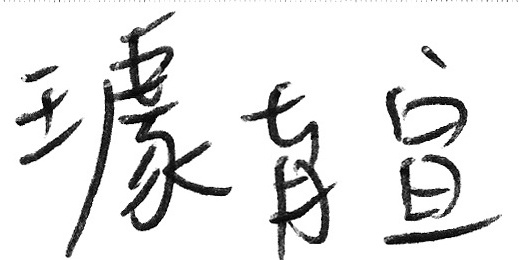 璩育宣